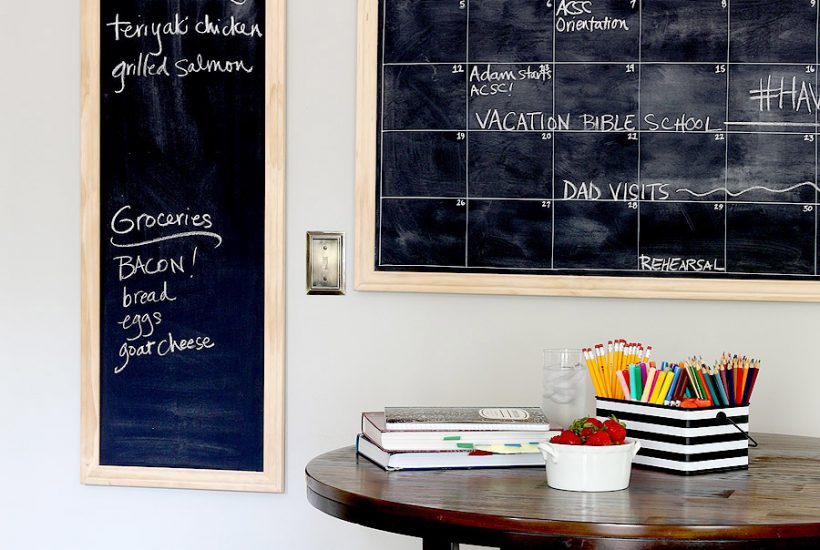 teriyaki chicken
grilled salmon
Groceries
BACON!
bread
eggs
goat cheese
5 6 7 8 9
ACSC
Orientation
12 13 14 15 16
Adam starts
ACSC!
VACATION BIBLE SCHOOL
#HAV
19 20 21 22 23
DAD VISITS
26 27 28 29 30
REHEARSAL